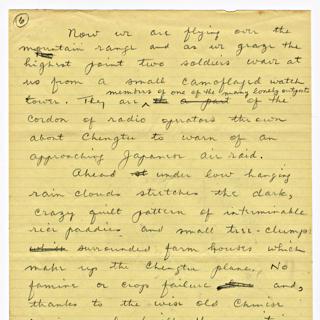 6
Now we are flying over the
mountain range and as we graze the
highest point two soldiers wave at
us from a small camoflaged watch
members of one of the many lonely outposts
tower. They are ^ the a part of the
cordon of radio operators thrown
about Chengtu to warn of an
approaching Japanese air raid.
Ahead st under low hanging
rain clouds stretches the dark,
crazy quilt pattern of interminable
rice paddies and small tree-clump
which surrounded farm houses which
make up the Chengtu plane. No
famine or crop failure and,
thanks to the wise old Chinese